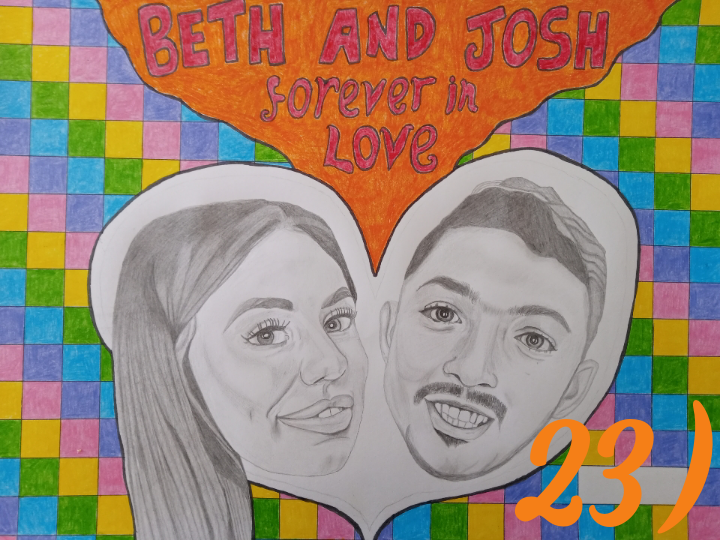 BETH AND JOSH
forever in
LOVE
23)